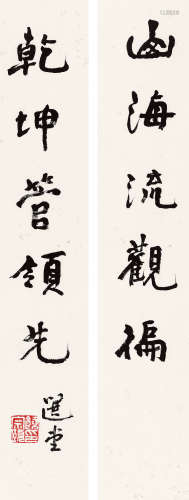 山海流觀徧
乾坤管領先
選堂